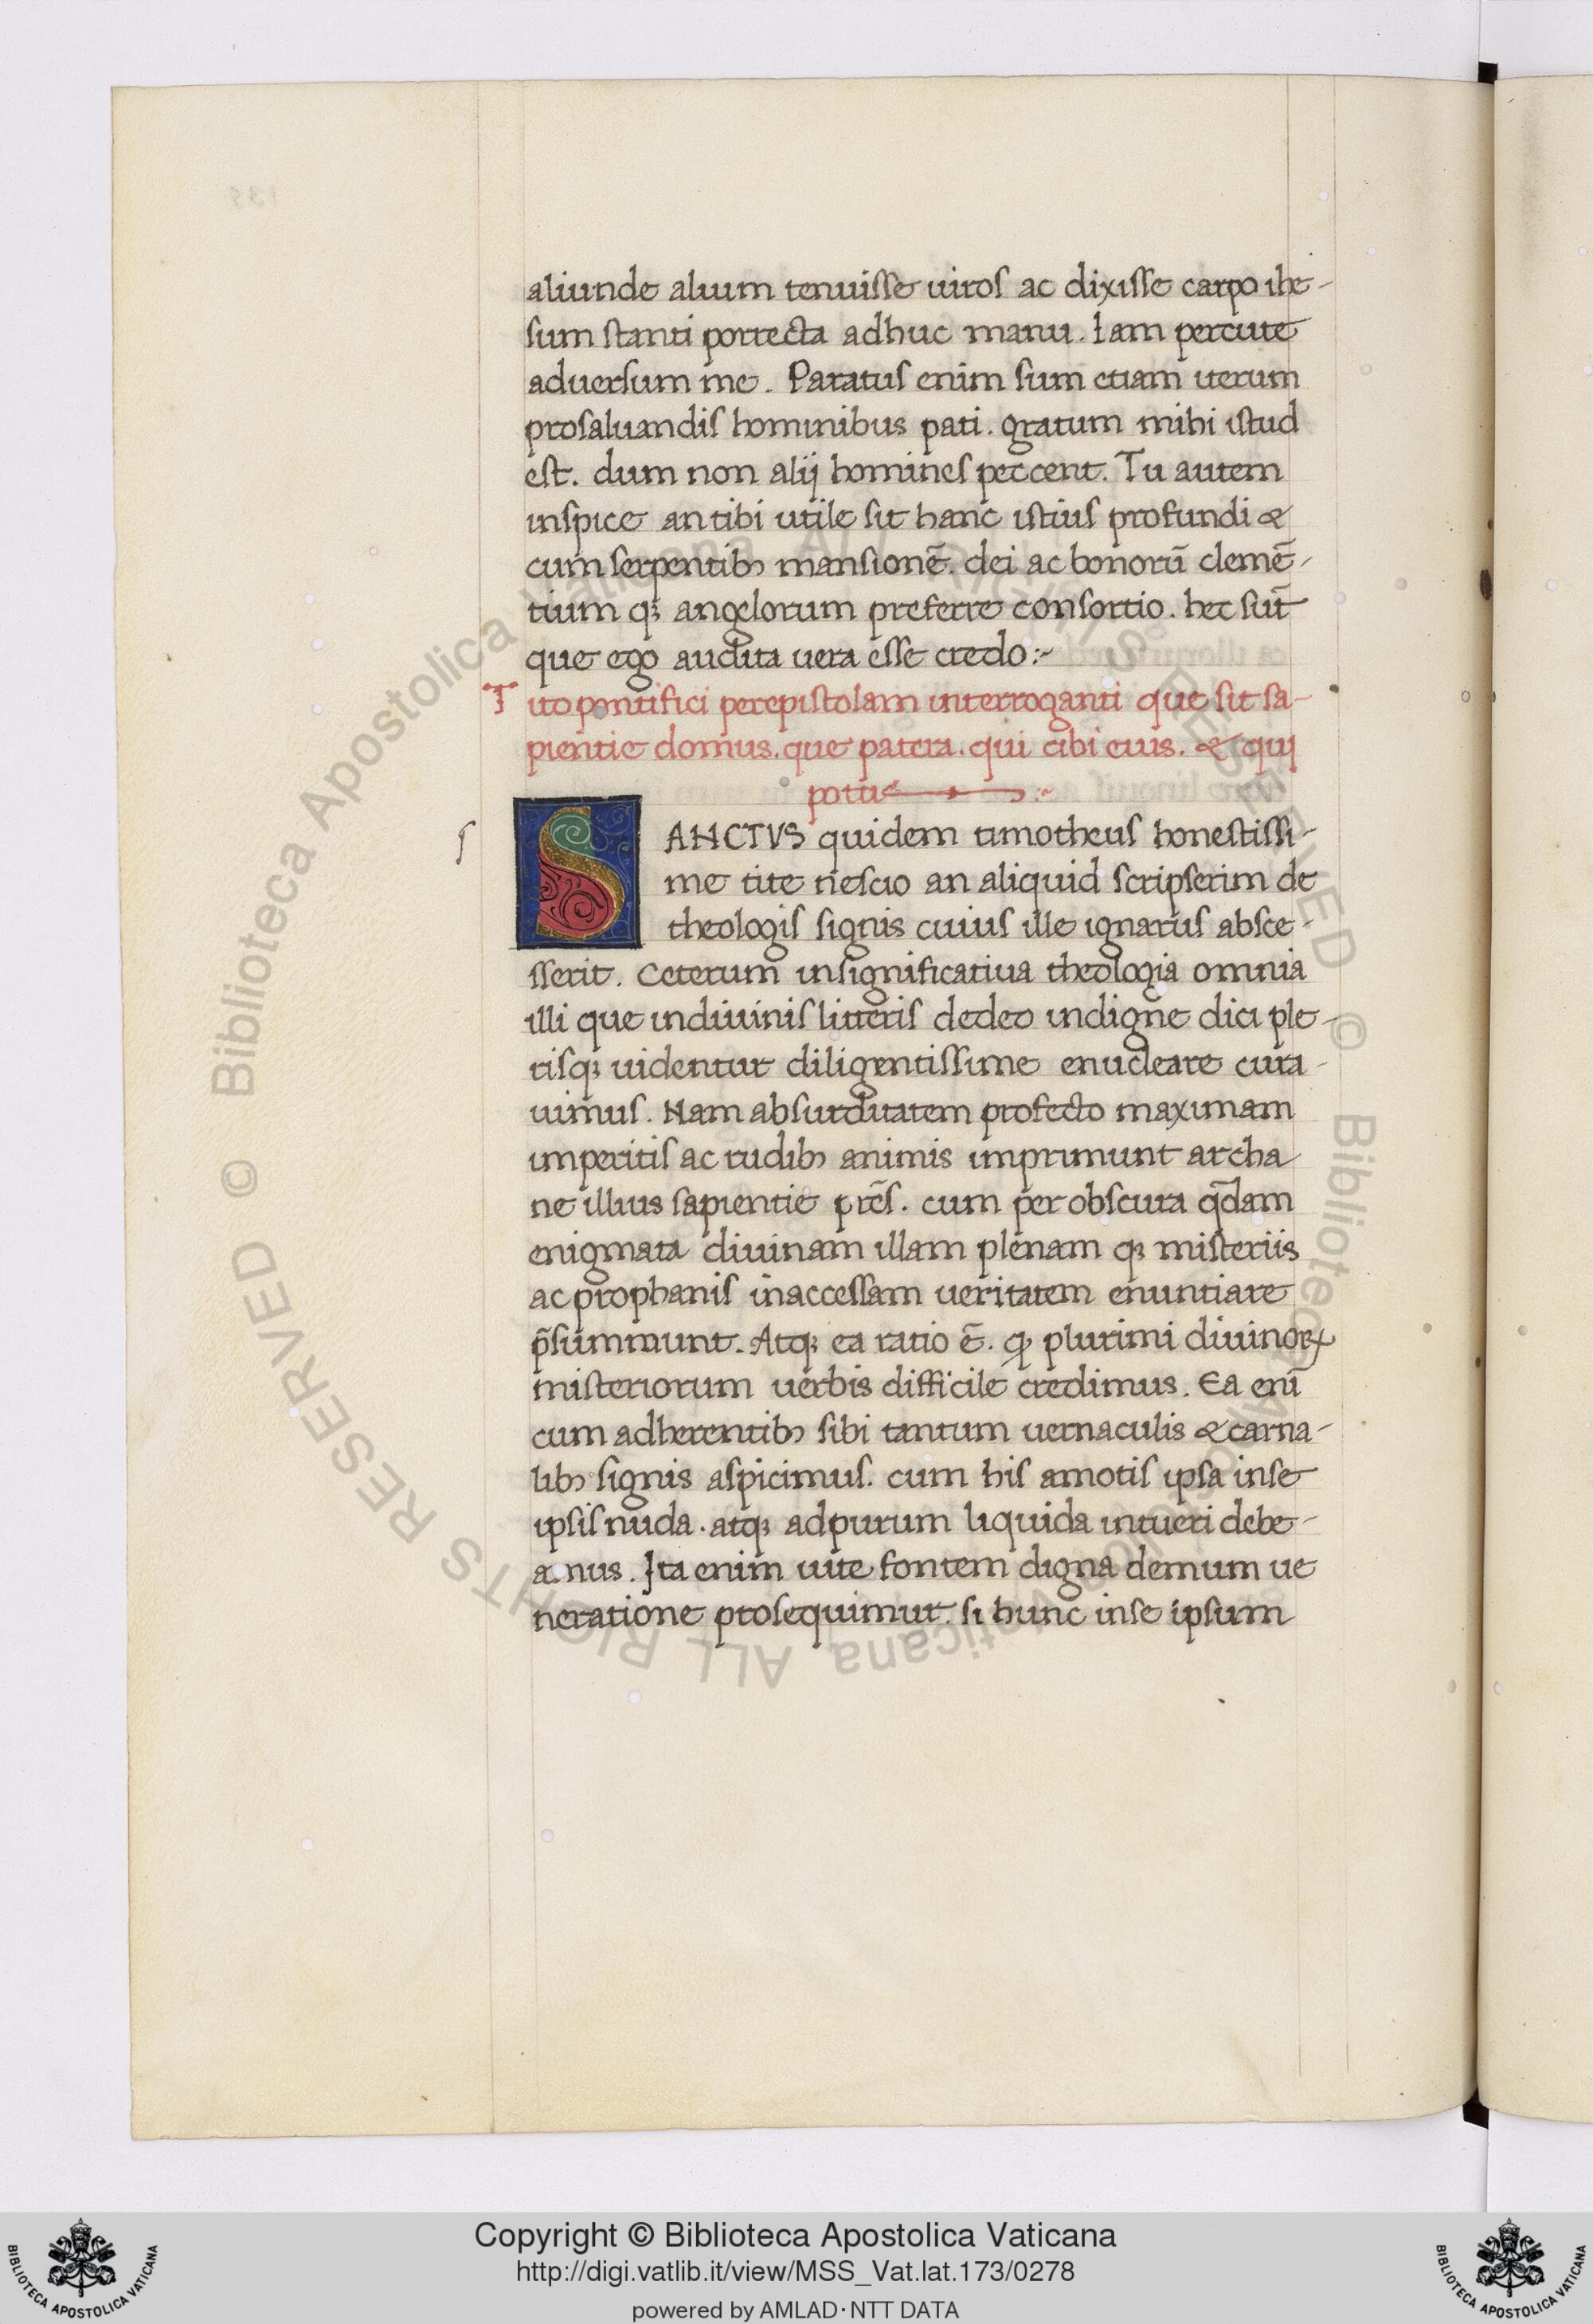 aliunde alium tenuisse uiros ac dixisse carpo ihe-
sum stanti porrecta adhuc manu. Iam percute
aduersum me. Paratus enim sum etiam iterum
prosaluandis hominibus pati. gratum mihi istud
est. dum non alij homines peccent. Tu autem
inspice an tibi utile sit hanc istius profundi &
cum serpentibꝫ mansionē. dei ac bonorū clemē-
tium qꝫ angelorum preferre consortio. hec sūt
que ego audita uera esse credo:~
Tito pontifici perepistolam interroganti que sit sa-
pientie domus. que patera. qui cibi eius. & qui
potus :~
s
SANCTVS quidem timotheus honestissi-
me tite nescio an aliquid scripserim de
theologis signis cuius ille ignarus absce-
sserit. Ceterum insignificatiua theologia omnia
illi que indiuinis litteris dedeo indigne dici ple-
risqꝫ uidentur diligentissime enucleare cura-
uimus. Nam absurditatem profecto maximam
imperitis ac rudibꝫ animis imprimunt archa
ne illius sapientie pr̄es. cum per obscura q̄dam
enigmata diuinam illam plenam qꝫ misteriis
ac prophanis inaccessam ueritatem enuntiare
p̄summunt. Atqꝫ ea ratio ē. ꝙ plurimi diuinoꝝ
misteriorum uerbis difficile credimus. Ea enī
cum adherentibꝫ sibi tantum uernaculis & carna-
libꝫ signis aspicimus. cum his amotis ipsa inse
ipsis nuda. atqꝫ adpurum liquida intueri debe-
amus. Ita enim uite fontem digna demum ue
neratione prosequimur. si hunc inse ipsum
© Biblioteca Apostolica Vaticana ALL RIGHTS RESERVED
© Biblioteca Apostolica Vaticana ALL RIGHTS RESERVED
Copyright © Biblioteca Apostolica Vaticana
http://digi.vatlib.it/view/MSS_Vat.lat.173/0278
powered by AMLAD·NTT DATA
BIBLIOTECA APOSTOLICA VATICANA
BIBLIOTECA APOSTOLICA VATICANA